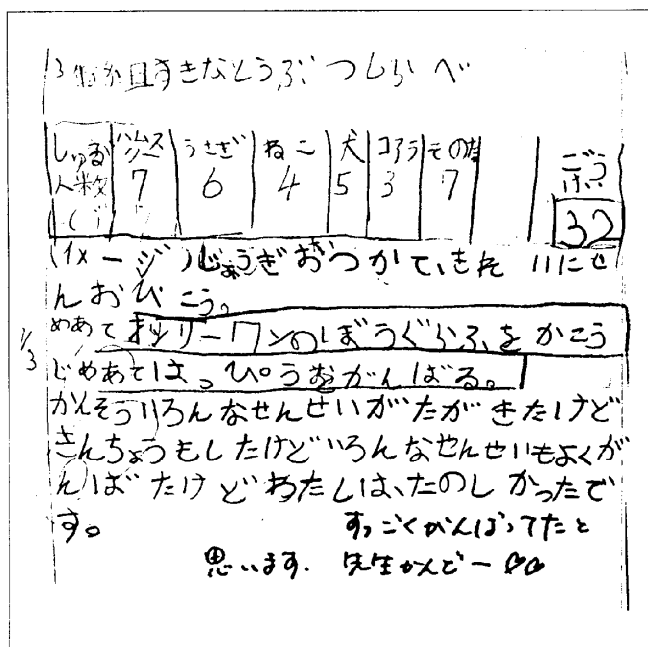 3年か組すきなどうぶつしらべ
しゅるい ハムスター うさぎ ねこ 犬 コアラ その他 ごうけい
人数 7 6 4 5 3 7 32
(イメージ)じょうぎおつかて、きれいにせ
んおひこう。
めあて オンリーワンのぼうぐらふをかこう
1/3
じめあてはっぴょうをがんばる。
かんそういろんなせんせいがたがきたけど
きんちょうもしたけどいろんなせんせいもよくが
んばたけどわたしは、たのしかったで
す。
すっごくがんばってたと
思います. 先生かんどー♡♡